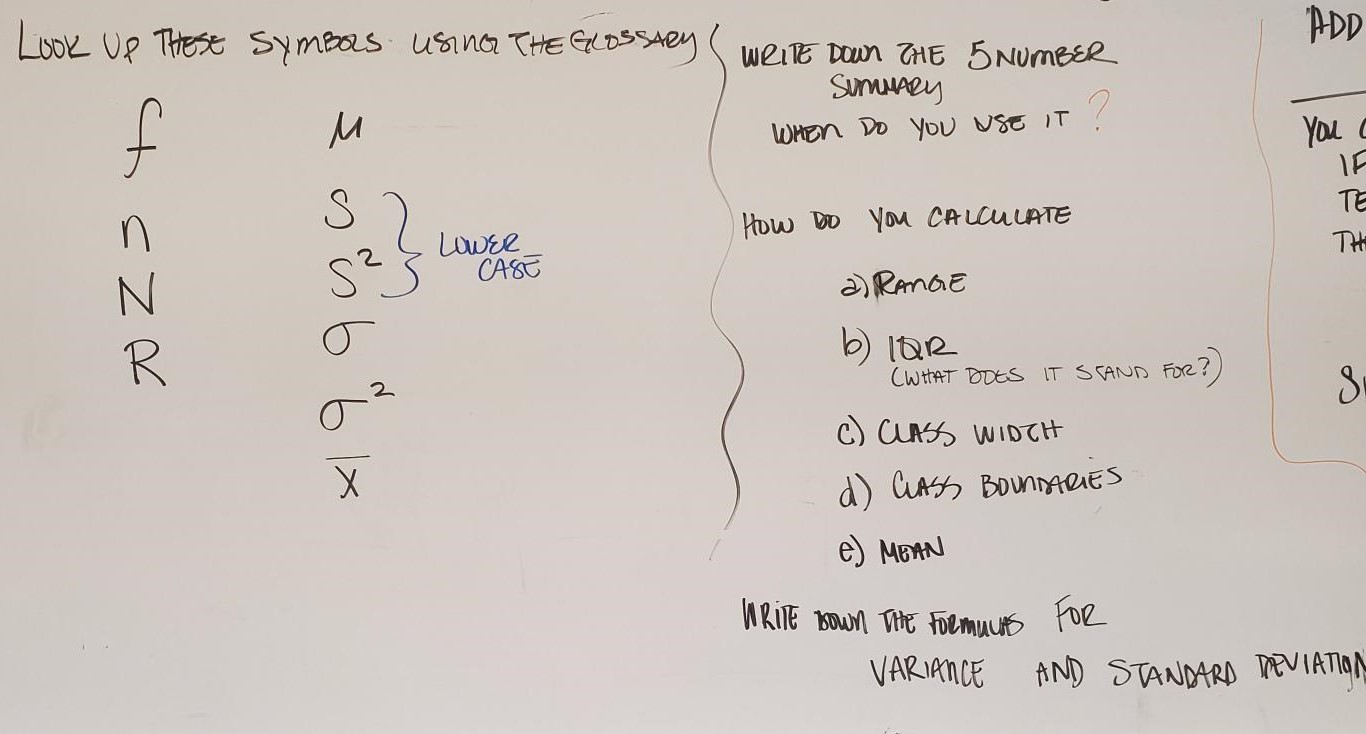 LOOK UP THESE SYMBOLS USING THE GLOSSARY
f
n
N
R
μ
s
s²
LOWER
CASE
σ
σ²
x̄
WRITE DOWN THE 5 NUMBER
SUMMARY
WHEN DO YOU USE IT ?
HOW DO YOU CALCULATE
a) RANGE
b) IQR
(WHAT DOES IT STAND FOR?)
c) CLASS WIDTH
d) CLASS BOUNDARIES
e) MEAN
WRITE DOWN THE FORMULAS FOR
VARIANCE AND STANDARD DEVIATION
ADD
YOU
IF
TE
TH